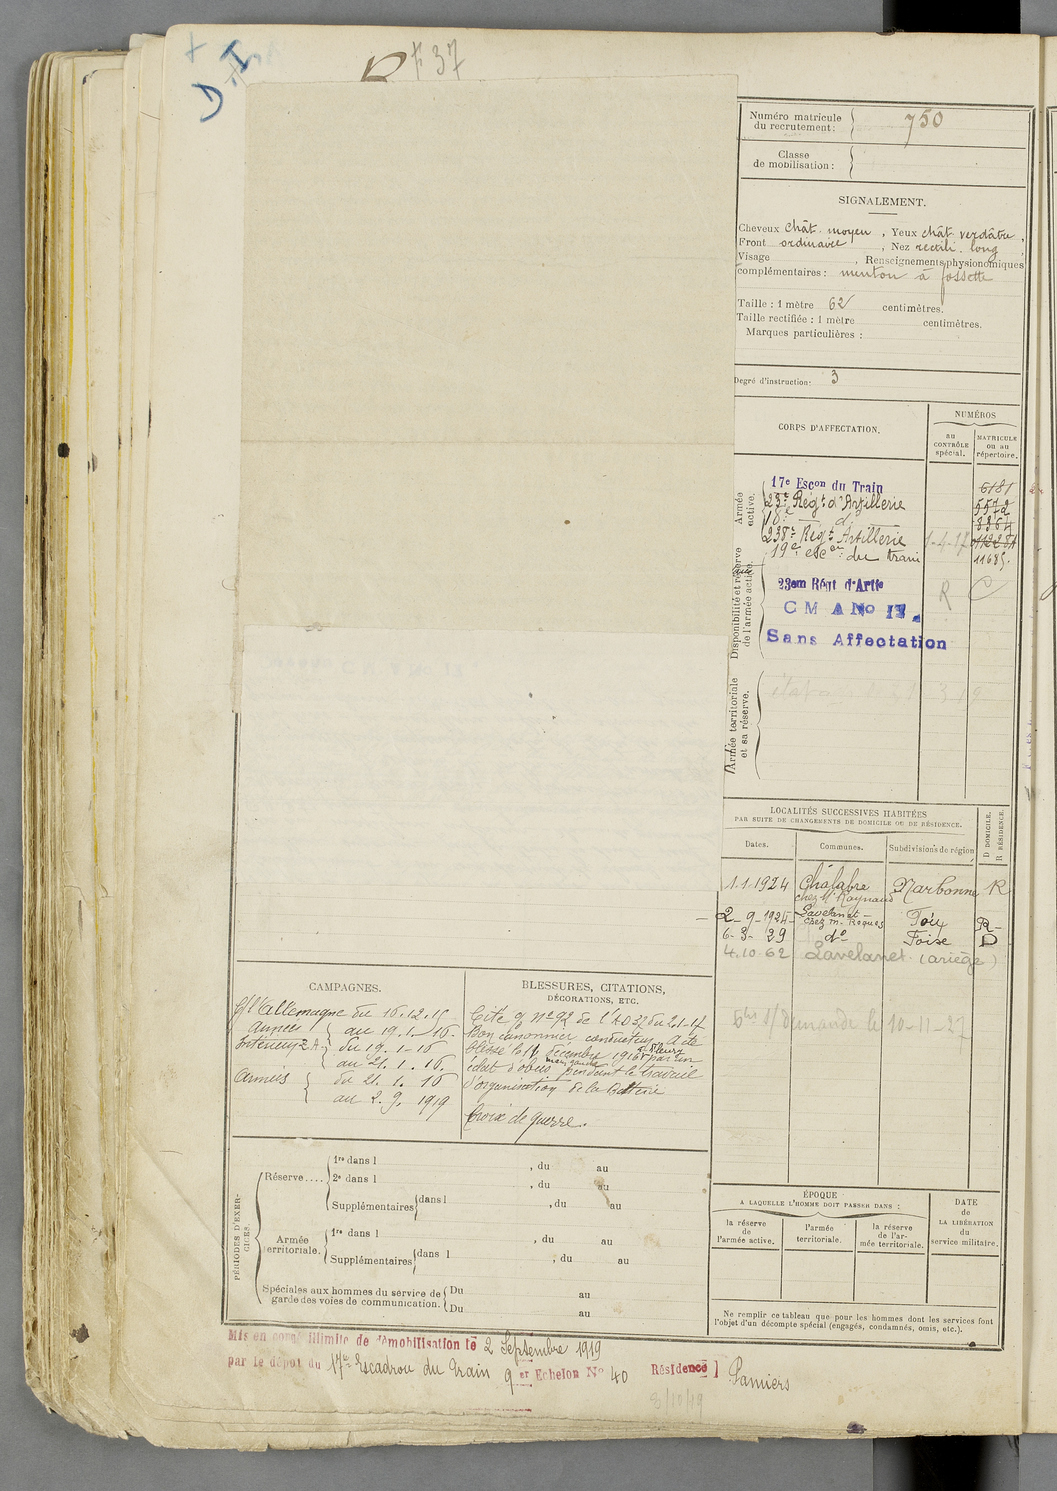 D I
F 37
Numéro matricule
du recrutement: 750
Classe
de mobilisation:
SIGNALEMENT.
Cheveux chât. moyen, Yeux chât verdâtre,
Front ordinaire, Nez rectili. long
Visage , Renseignements physionomiques
complémentaires: menton à fossette
Taille: 1 mètre 62 centimètres.
Taille rectifiée: 1 mètre centimètres.
Marques particulières:
Degré d'instruction: 3
CORPS D'AFFECTATION.
NUMÉROS
au
CONTRÔLE
spécial.
MATRICULE
ou au
répertoire.
Armée
active.
17e Escon du Train 6181
23e Régt d'Artillerie 5572
18e d°
238e Régt Artillerie 1-4-17
19e escon du train 11685.
Disponibilité et réserve
de l'armée active.
23em Régt d'Artie R C
C M A No 17.
Sans Affectation
Armée territoriale
et sa réserve.
LOCALITÉS SUCCESSIVES HABITÉES
PAR SUITE DE CHANGEMENTS DE DOMICILE OU DE RÉSIDENCE.
Dates.
Communes.
Subdivisions de région
D DOMICILE.
R RÉSIDENCE.
1.1.1924 Chalabre Narbonne R
chez Mr Raynaud
2-9-1924 Lavelanet Foix R
chez M. Roques
6-3-29 d° Foise D
4.10.62 Lavelanet (ariège)
demande le 10-11-27
CAMPAGNES.
Cl l'Allemagne du 16.12.15
Armées au 19.1.16.
Intérieur du 19.1-16
au 21.1.16.
Armées du 21.1.16
au 2.9.1919
BLESSURES, CITATIONS,
DÉCORATIONS, ETC.
Cité O. n° 92 de l'AD 37 du 2.1-17
Bon canonnier conducteur. A été
blessé le 16 décembre 1916 à Fleury par un
éclat d'obus main gauche pendant le travail
d'organisation de la Batterie
Croix de guerre.
PÉRIODES D'EXER-
CICES.
Réserve....
1re dans l , du au
2e dans l , du au
Supplémentaires dans l , du au
Armée
territoriale.
1re dans l , du au
Supplémentaires dans l , du au
Spéciales aux hommes du service de
garde des voies de communication.
Du au
Du au
ÉPOQUE
A LAQUELLE L'HOMME DOIT PASSER DANS:
la réserve
de
l'armée active.
l'armée
territoriale.
la réserve
de l'ar-
mée territoriale.
DATE
de
LA LIBÉRATION
du
service militaire.
Ne remplir ce tableau que pour les hommes dont les services font
l'objet d'un décompte spécial (engagés, condamnés, omis, etc.).
Mis en congé illimité de démobilisation le 2 Septembre 1919
par le dépot du 17e Escadron du Train 9 Echelon No 40 Résidence Pamiers
8/10/19